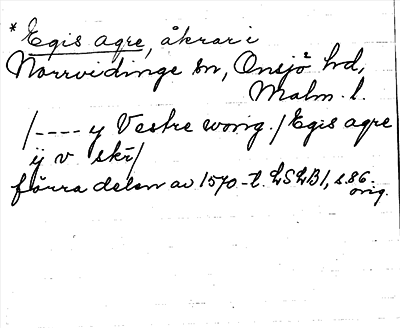 * Egis agre, åkrar i
Norrvidinge sn, Onsjö hd,
Malm. l.
/---- y Vestre wong. / Egis agre
ij v skr/
förra delen av 1570-t. LSLB1, s.86.
orig.